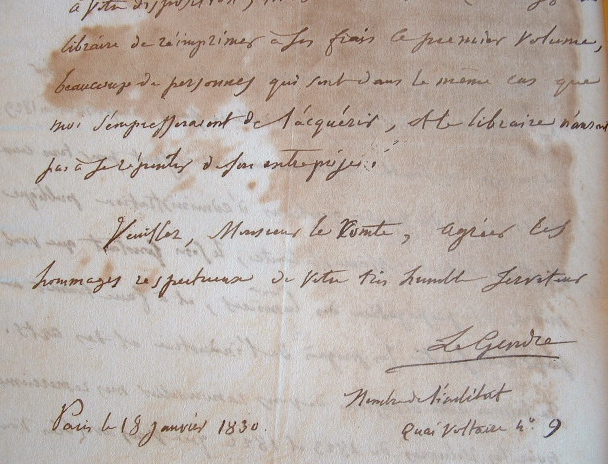 à votre disposition,
libraire de réimprimer à ses frais le premier volume,
beaucoup de personnes qui sont dans le même cas que
moi s'empresseraient de l'acquérir, et le libraire n'aurait
pas à se repentir de son entreprise.
Veuillez, Monsieur le Comte, agréer les
hommages respectueux de votre très humble serviteur
LeGendre
Membre de l'institut
Quai Voltaire n° 9
Paris le 18 janvier 1830.